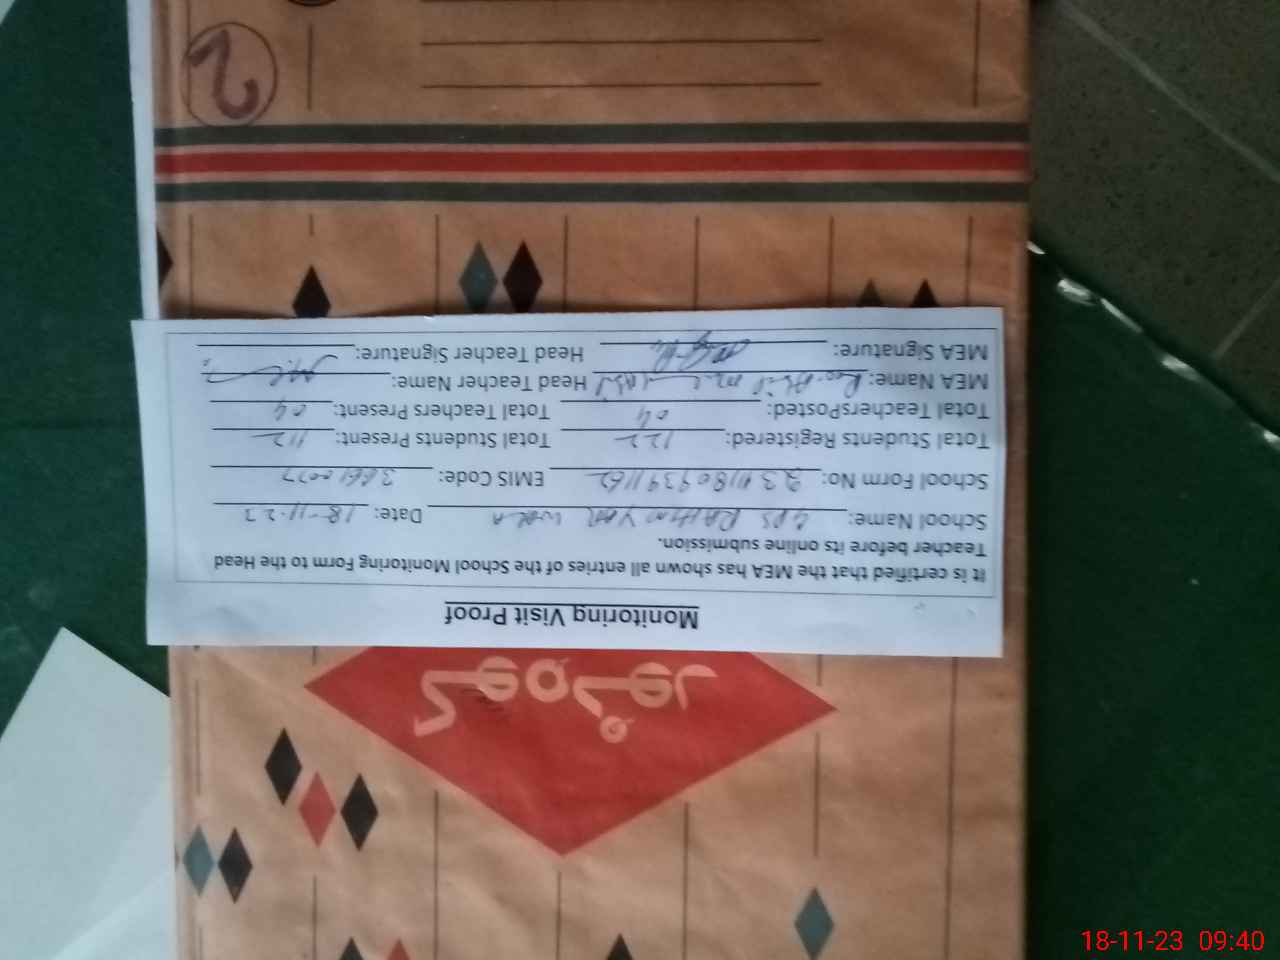 Monitoring Visit Proof
It is certified that the MEA has shown all entries of the School Monitoring Form to the Head
Teacher before its online submission.
School Name: GPS RAHIM YAR WALA Date: 18-11-23
School Form No: EMIS Code:
Total Students Registered: 122 Total Students Present: 112
Total TeachersPosted: 04 Total Teachers Present: 04
MEA Name: Head Teacher Name:
MEA Signature: Head Teacher Signature:
2
18-11-23 09:40